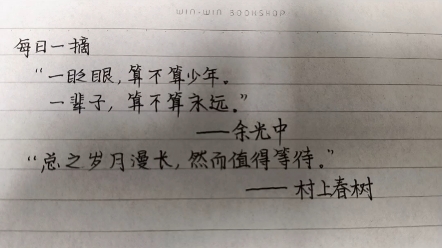 WIN-WIN BOOKSHOP
每日一摘
“一眨眼，算不算少年。
一辈子，算不算永远。”
——余光中
“总之岁月漫长，然而值得等待。”
——村上春树